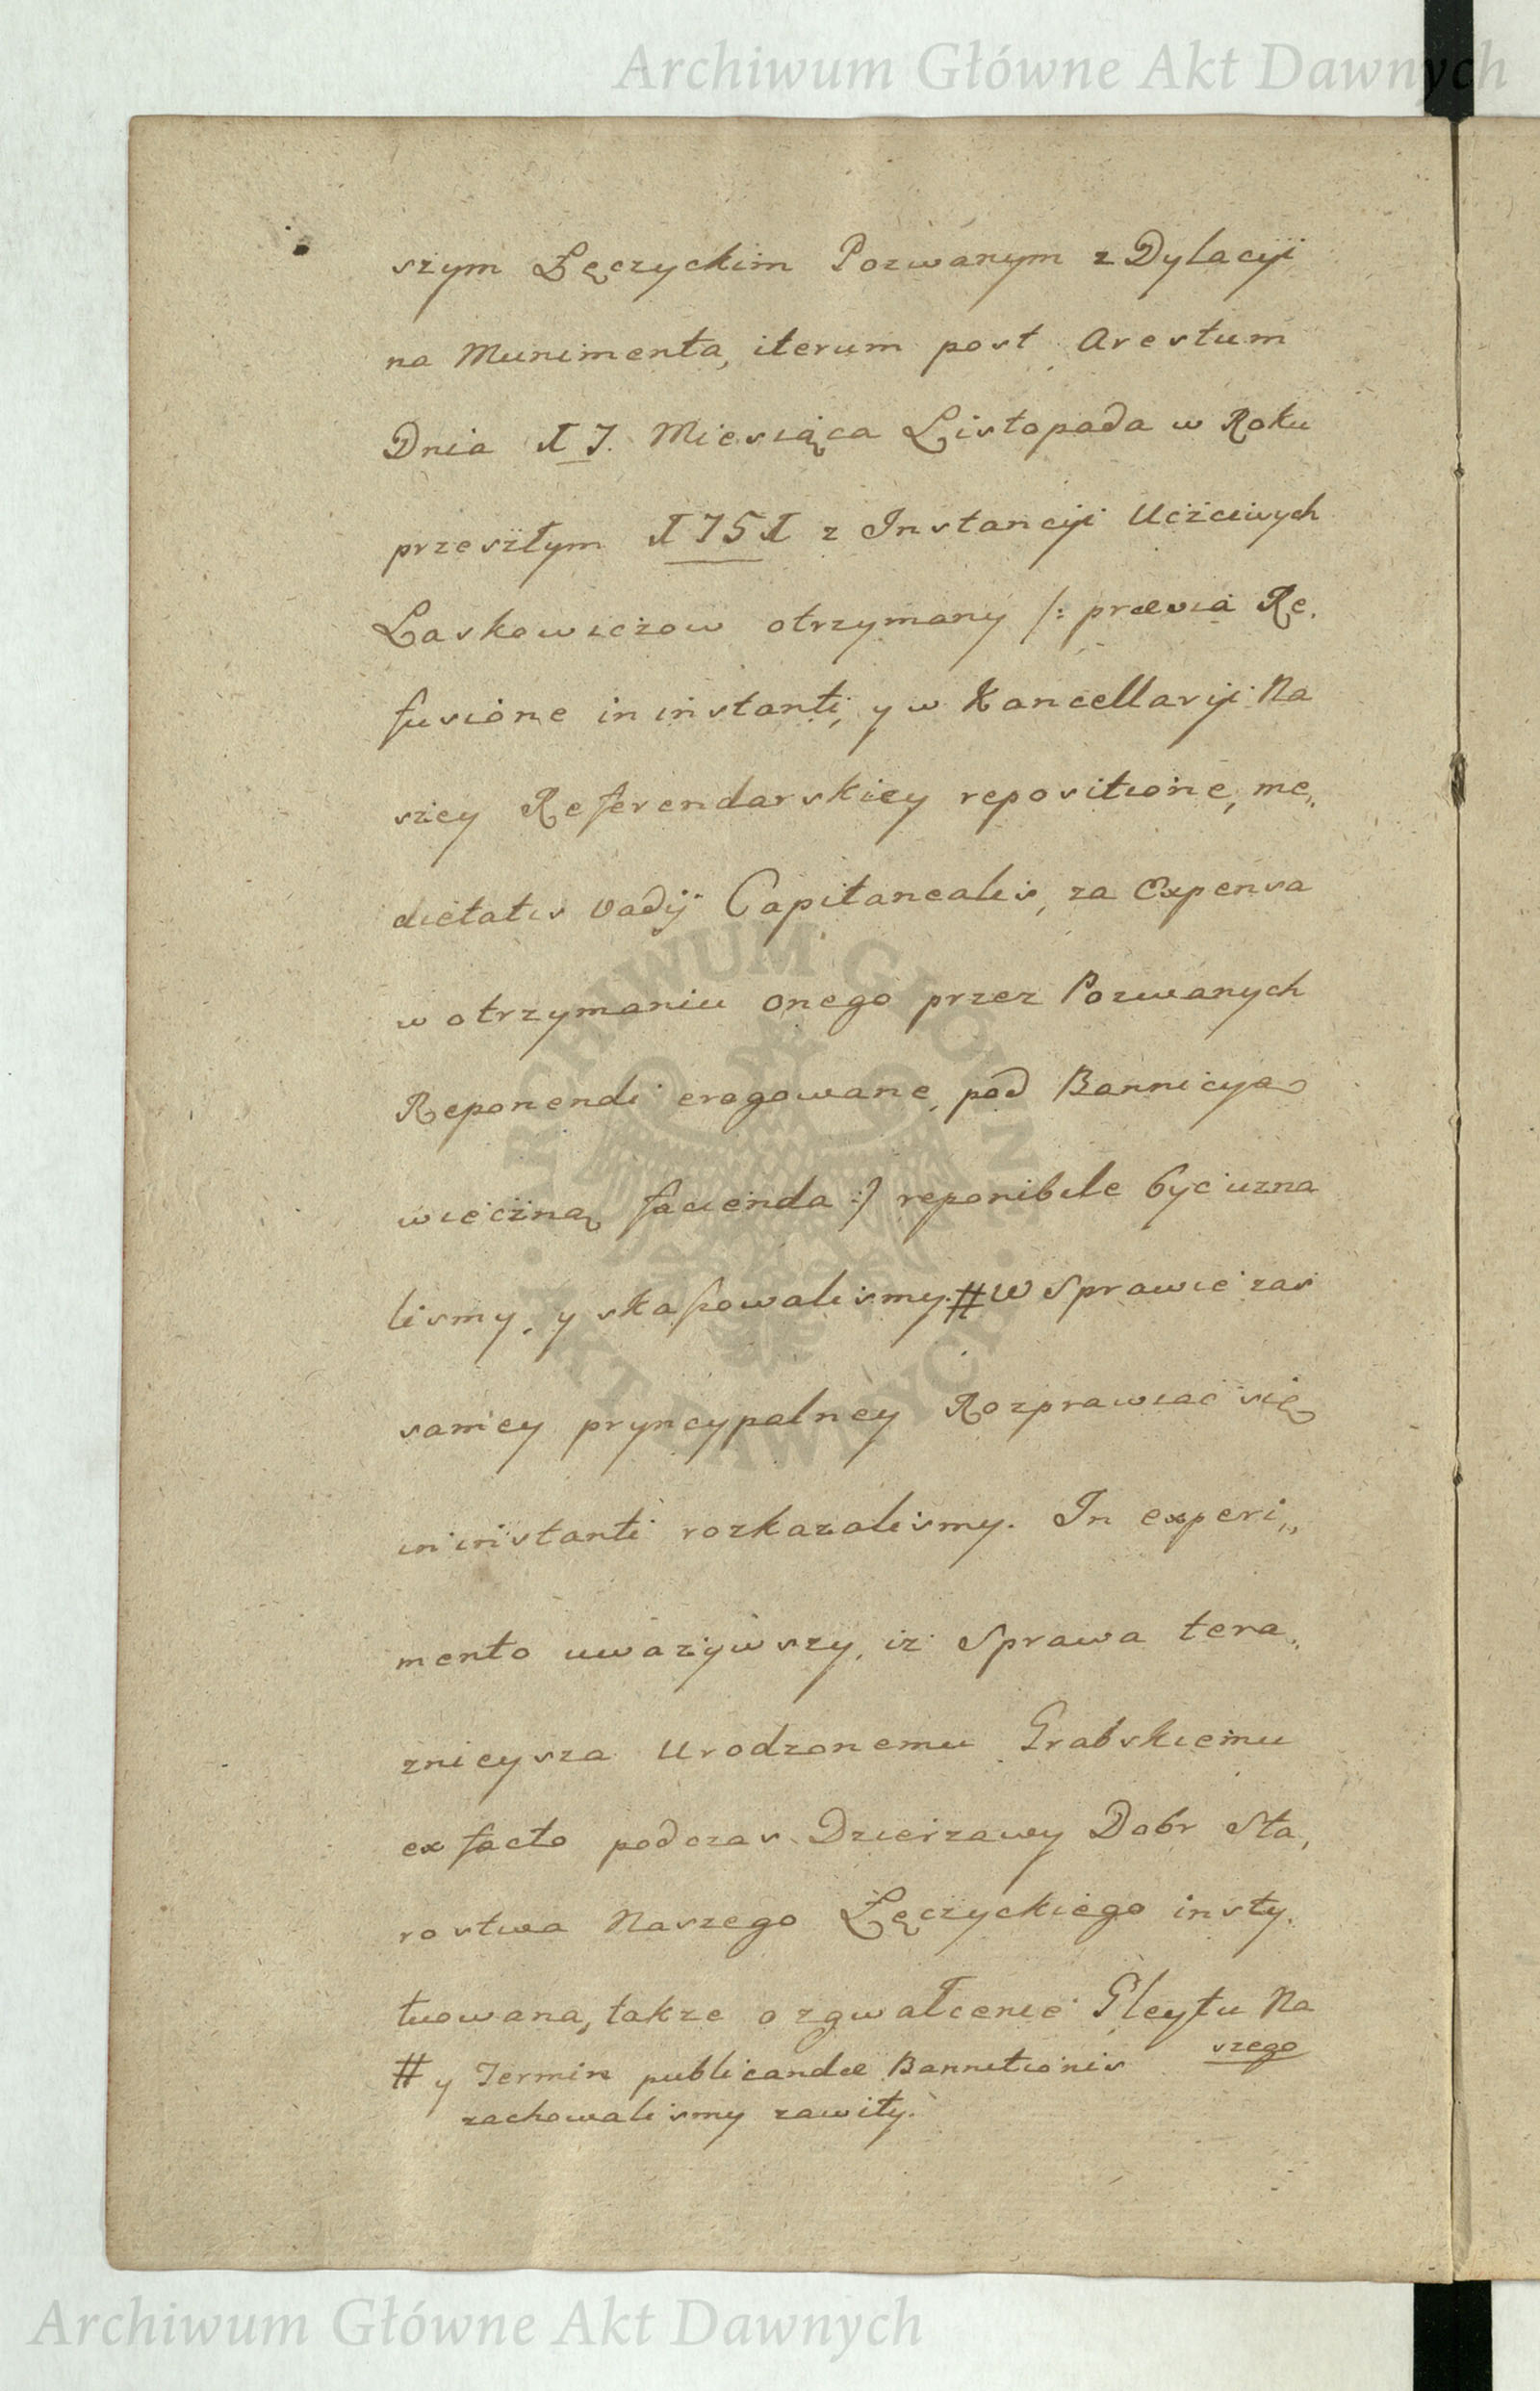 Archiwum Główne Akt Dawnych
szym Łęczyckim Pozwanym z Dylacyi
na Munimenta, iterum post Arestum
Dnia 17. Miesiąca Listopada w Roku
przeszłym 1751 z Instancyi Uczciwych
Laskowiczow otrzymany /: prævia Re,
fusione in instanti, y w Kancellaryi Na
szey Referendarskiey repositione, me,,
dietatis vadij Capitanealis, za Expensa
w otrzymaniu onego przez Pozwanych
Reponendi erogowane, pod Bannicyą
wieczną facienda :/ reponibile byc uzna
lismy, y skassowalismy. # W Sprawie zas
samey pryncypalney Rozprawiac się
in instanti rozkazalismy. In experi,,
mento uwazywszy, iz Sprawa tera,
znieysza Urodzonemu Grabskiemu
ex facto podczas Dzierzawy Dobr Sta,
rostwa Naszego Łęczyckiego insty,
tuowana, takze o zgwałcenie Gleytu Na
szego
# y Termin publicandæ Bannitionis
zachowalismy zawity.
ARCHIWUM GŁÓWNE AKT DAWNYCH
Archiwum Główne Akt Dawnych